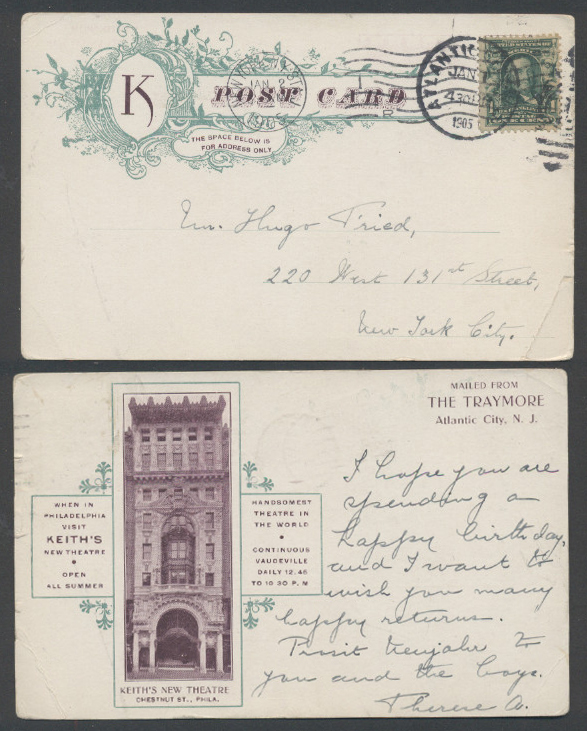 K
POST CARD
THE SPACE BELOW IS
FOR ADDRESS ONLY
JAN 2
1905
ATLANTIC
JAN
1905
Hugo Fried,
220 West 131st Street,
New York City.
MAILED FROM
THE TRAYMORE
Atlantic City, N. J.
WHEN IN
PHILADELPHIA
VISIT
KEITH'S
NEW THEATRE
•
OPEN
ALL SUMMER
HANDSOMEST
THEATRE IN
THE WORLD
•
CONTINUOUS
VAUDEVILLE
DAILY 12.45
TO 10 30 P. M
KEITH'S NEW THEATRE
CHESTNUT ST., PHILA.
I hope you are
spending a
happy birthday,
and I want to
wish you many
happy returns.
Prosit Neujahr to
you and the boys.
Therese A.